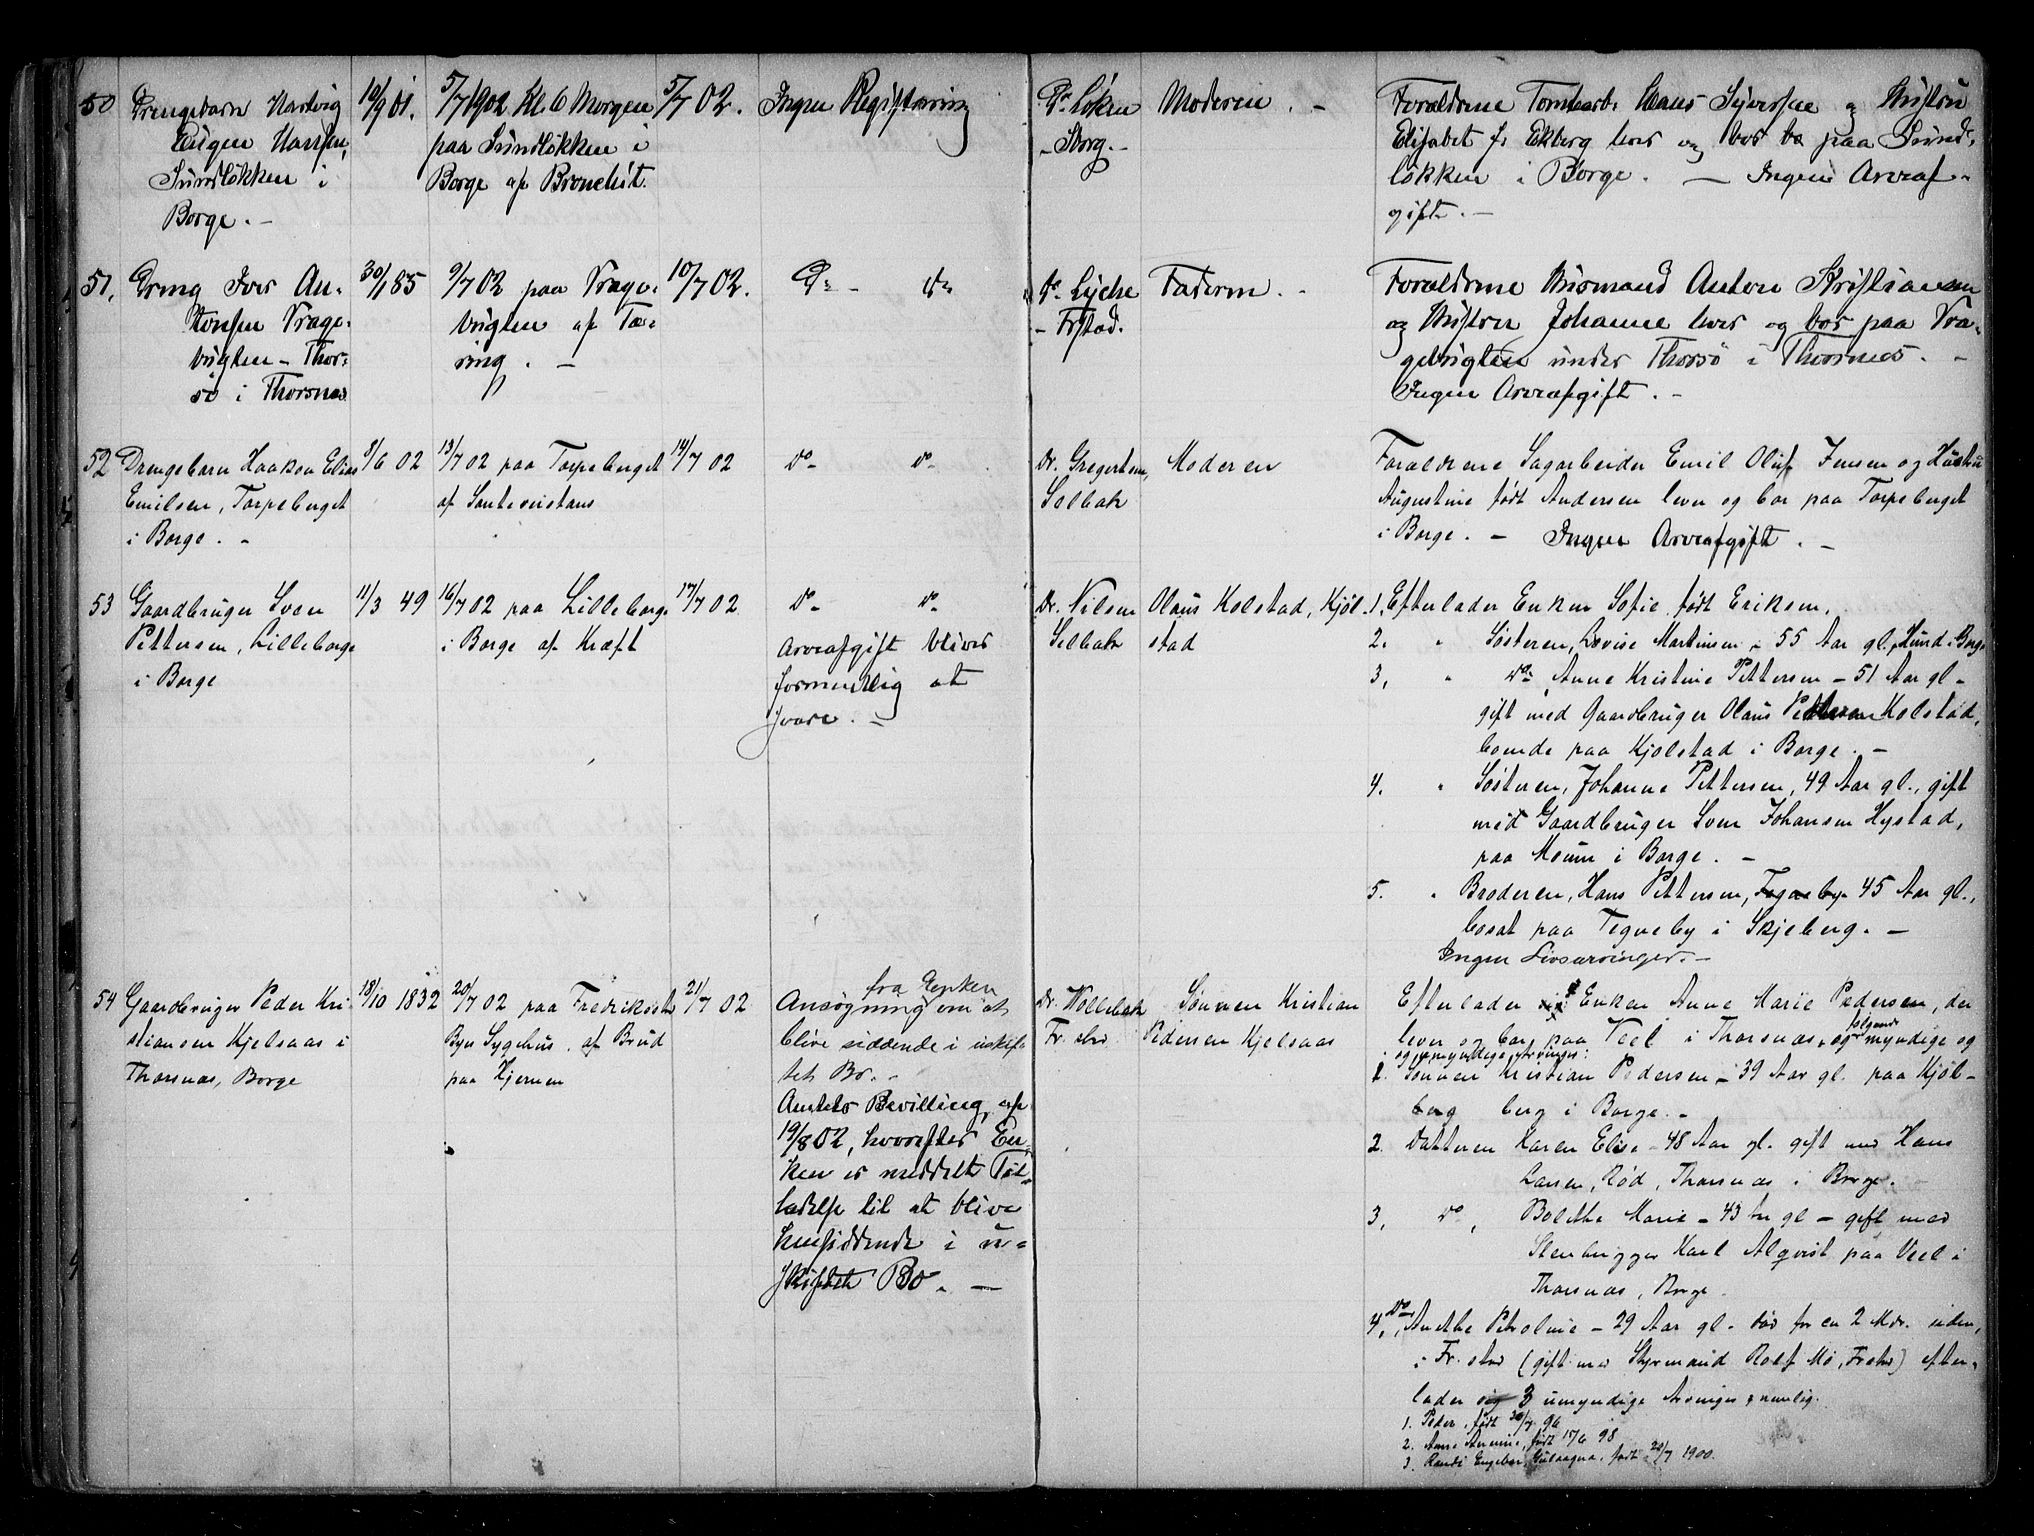 50 Drengebarn Hartvig
Eugen Hansen,
Sundløkken i
Borge. -
10/9 01.
5/7 1902 Kl. 6 Morgen
paa Sundløkken i
Borge af Bronchit.
5/7 02.
Ingen Registrering
Dr. Løken
- Sborg. -
Moderen. -
Forældrene Tomtearb. Hans Syversen og Hustru
Elisabet f. Ekberg lever og bor paa Sund-
løkken i Borge. - Ingen Arveaf-
gift. -
51, Dreng Iver An-
tonsen Vrage-
bugten - Thor-
sø i Thorsnæs
30/1 85
9/7 02 paa Vrage-
bugten af Tæ-
ring. -
10/7 02.
Do - do
Dr. Lyche
- Frstad.
Faderen. -
Forældrene Husmand Anton Kristiansen
og Hustru Johanne lever og bor paa Vra-
gebugten under Thorsø i Thorsnes. -
Ingen Arveafgift. -
52 Drengebarn Haakon Elias
Emilsen, Torpeberget
i Borge. -
8/6 02
13/7 02 paa Torpeberget
af
14/7 02
do - do -
Dr. Gregertsen,
Selbak
Moderen
Forældrene Sagarbeider Emil Oluf Jensen og Hustru
Augustine født Andersen lever og bor paa Torpeberget
i Borge. - Ingen Arveafgift. -
53 Gaardbruger Sven
Pettersen, Lilleborge
i Borge
11/3 49
16/7 02 paa Lilleborge
i Borge af Kræft
17/7 02
do - do -
Arveafgift bliver
formentlig at
svare. -
Dr. Nilsen
Selbak
Olaus Kolstad, Kjøl-
stad
1, Efterlader Enken Sofie født Eriksen,
2. " Søsteren, Lovise Martinsen - 55 Aar gl., Hund i Borge
3, " do, Anne Kristine Pettersen - 51 Aar gl -
gift med Gaardbruger Olaus Pettersen Kolstad,
boende paa Kjølstad i Borge. -
4. " Søsteren, Johanne Pettersen, 49 Aar gl., gift
med Gaardbruger Sven Johansen Hystad,
paa Moum i Borge. -
5. " Broderen, Hans Pettersen, Tegneby 45 Aar gl.,
bosat paa Tegneby i Skjeberg. -
Ingen Livsarvinger. -
54 Gaardbruger Peder Kri-
stiansen Kjelsaas i
Thorsnæs, Borge
18/10 1832
20/7 02 paa Fredriksstad
Byes Sygehus. af Brud
paa Hjernen
21/7 02
fra Enken
Ansøgning om at
blive siddende i uskif-
tet Bo. -
Amtets Bevilling af
19/8 02, hvorefter En-
ken er meddelt Til-
ladelse til at blive
hensiddende i u-
skiftet Bo. -
Dr. Wollebæk
Fr. stad
Sønnen Kristian
Pedersen Kjelsaas
Efterlader Enken Anne Marie Pedersen, der
lever og bor paa Veel i Thorsnæs, og følgende myndige og
og umyndige Arvinger:
1. Sønnen Kristian Pedersen - 39 Aar gl. paa Kjøl-
berg berg i Borge. -
2. Datteren Karen Elise - 48 Aar gl. gift med Hans
Larsen, Rød, Thorsnæs i Borge.
3, do, Bolethe Marie - 43 Aar gl - gift med
Stenhugger Karl Alqvist paa Veel i
Thorsnæs, Borge.
4, do, Anethe Petroline - 29 Aar gl. død for ca 2 Mdr. siden,
i Fr. stad (gift med Styrmand Rolf Mö, Frstad) efter-
lader sig 3 umyndige Arvinger, nemlig.
1. Peder, født 30/7 96
2. Anne, født 15/6 98
3. Randi, født 20/7 1900.